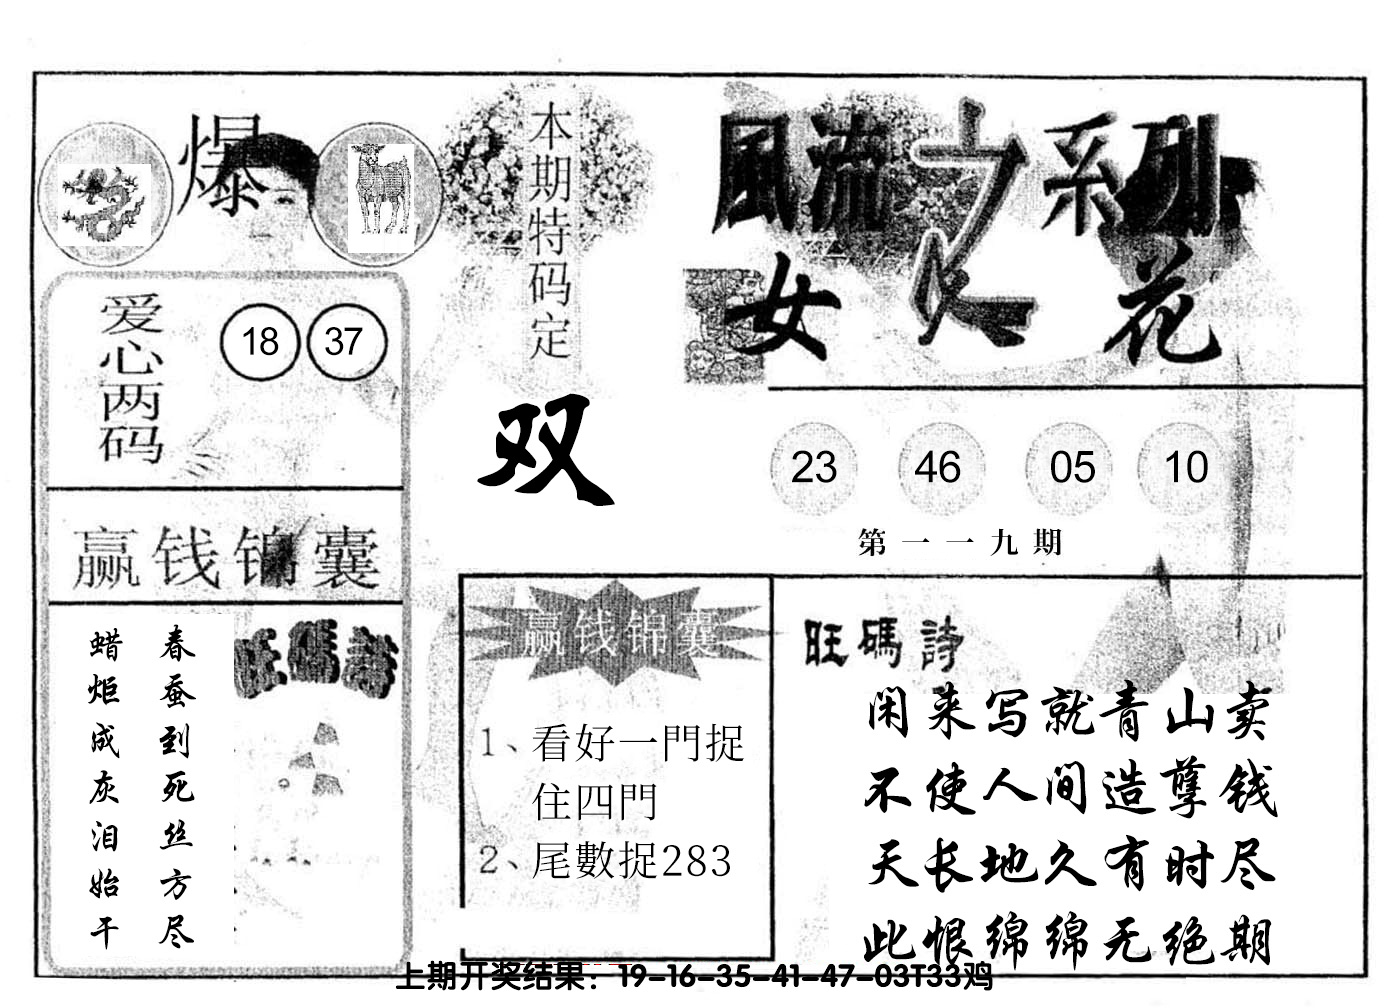 爆
本期特码定
双
風流之系列
女人花
爱心两码
18 37
23 46 05 10
第一一九期
赢钱锦囊
春蚕到死丝方尽
蜡炬成灰泪始干
旺碼詩
赢钱锦囊
1、看好一門捉
住四門
2、尾數捉283
旺碼詩
闲来写就青山卖
不使人间造孽钱
天长地久有时尽
此恨绵绵无绝期
上期开奖结果：19-16-35-41-47-03T33鸡